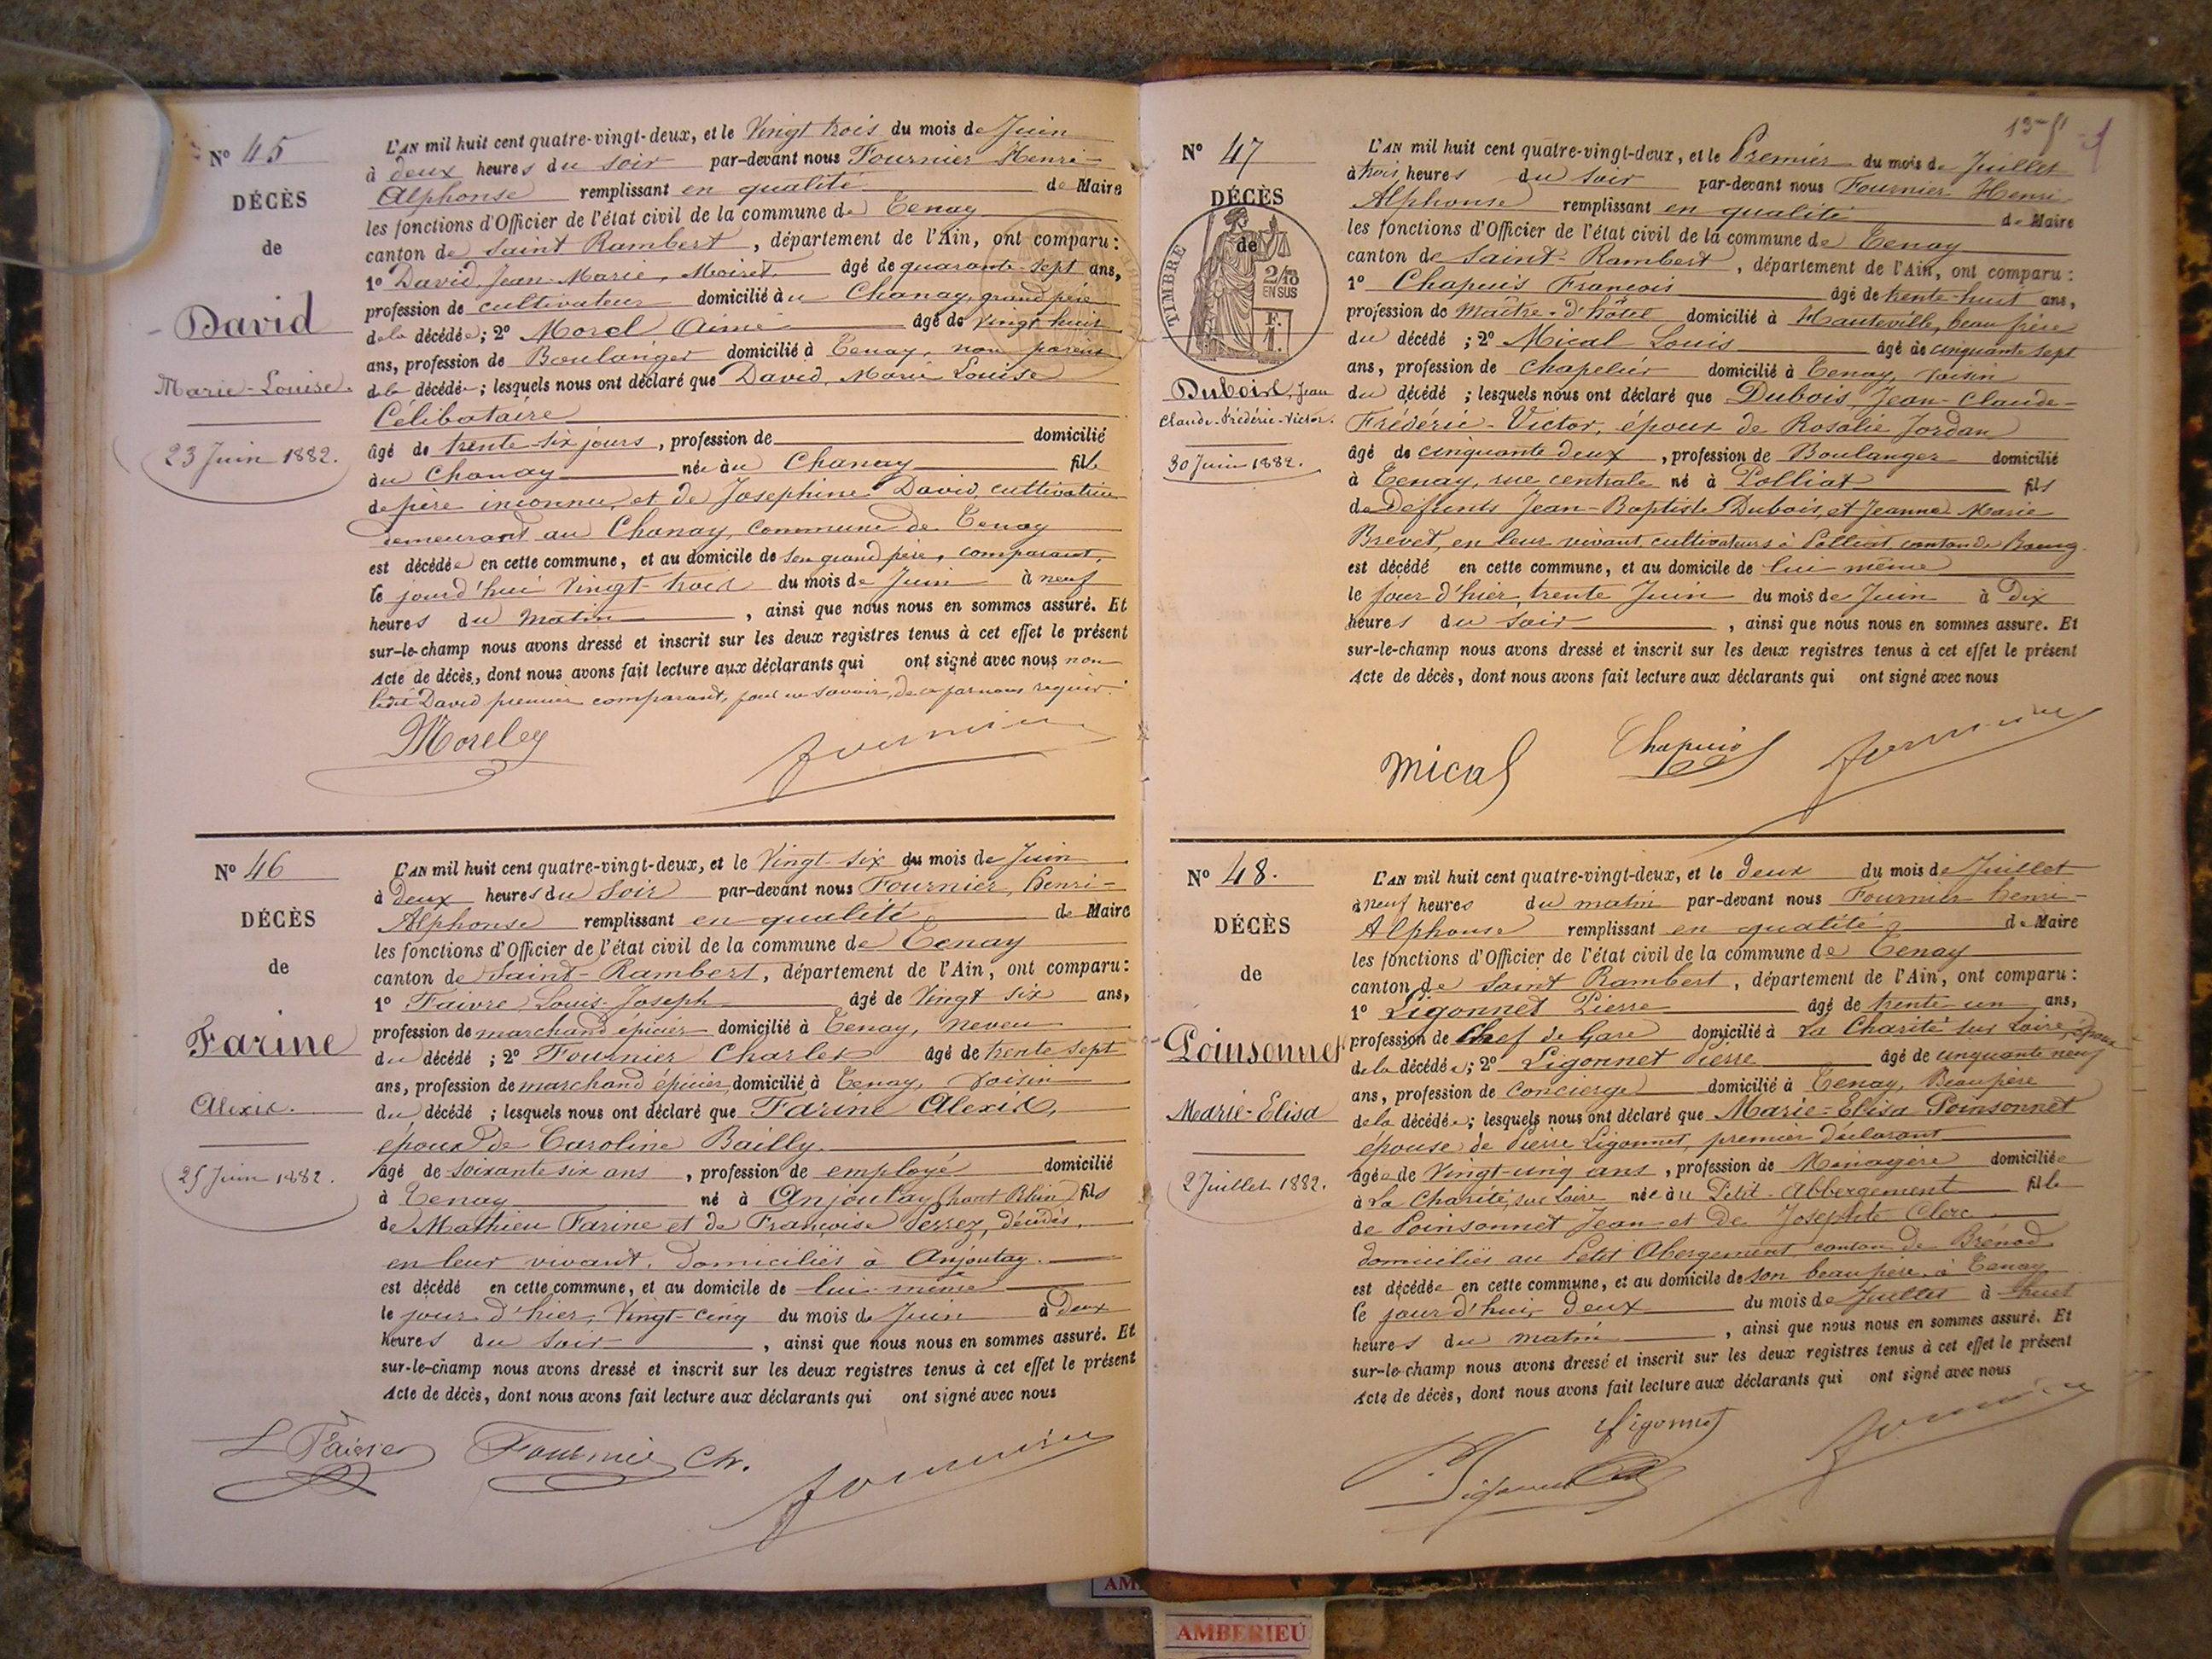 N° 45
DÉCÈS
de
David
Marie-Louise.
23 Juin 1882.
L'AN mil huit cent quatre-vingt-deux, et le Vingt trois du mois de Juin
à deux heures du soir par-devant nous Fournier Henri-
Alphonse remplissant en qualité de Maire
les fonctions d'Officier de l'état civil de la commune de Tenay
canton de Saint Rambert, département de l'Ain, ont comparu:
1° David, Jean-Marie, âgé de quarante-sept ans,
profession de cultivateur domicilié au Chanay, grand père
de la décédée; 2° Morel Aimé âgé de vingt-huit
ans, profession de Boulanger domicilié à Tenay, non parent
de la décédée; lesquels nous ont déclaré que David, Marie Louise
Célibataire
âgé de trente-six jours, profession de domicilié
au Chanay née au Chanay fille
de père inconnu et de Josephine David, cultivatrice
demeurant au Chanay, commune de Tenay
est décédée en cette commune, et au domicile de son grand père, comparant,
le jourd'hui vingt-trois du mois de Juin à neuf
heures du matin, ainsi que nous nous en sommes assuré. Et
sur-le-champ nous avons dressé et inscrit sur les deux registres tenus à cet effet le présent
Acte de décès, dont nous avons fait lecture aux déclarants qui ont signé avec nous non
ledit David premier comparant, pour ne savoir, de ce par nous requis.
Fournier
N° 46
DÉCÈS
de
Farine
Alexis.
25 Juin 1882.
L'AN mil huit cent quatre-vingt-deux, et le Vingt-six du mois de Juin
à Deux heures du Soir par-devant nous Fournier, Henri-
Alphonse remplissant en qualité de Maire
les fonctions d'Officier de l'état civil de la commune de Tenay
canton de Saint-Rambert, département de l'Ain, ont comparu:
1° Faivre Louis-Joseph âgé de Vingt six ans,
profession de marchand épicier domicilié à Tenay, neveu
du décédé; 2° Fournier Charles âgé de trente sept
ans, profession de marchand épicier, domicilié à Tenay, voisin
du décédé; lesquels nous ont déclaré que Farine Alexis,
époux de Caroline Bailly
âgé de soixante six ans, profession de employé domicilié
à Tenay né à Anjoutay (haut Rhin) fils
de Mathieu Farine et de Françoise Perrez, décédés,
en leur vivant, domiciliés à Anjoutay.
est décédé en cette commune, et au domicile de lui-même
le jour d'hier, Vingt-cinq du mois de Juin à Deux
heures du Soir, ainsi que nous nous en sommes assuré. Et
sur-le-champ nous avons dressé et inscrit sur les deux registres tenus à cet effet le présent
Acte de décès, dont nous avons fait lecture aux déclarants qui ont signé avec nous
L Faivre Fournier Ch. Fournier
N° 47
DÉCÈS
de
TIMBRE
2/10 EN SUS
Dubois, Jean
Claude-Frédéric-Victor.
30 Juin 1882.
L'AN mil huit cent quatre-vingt-deux, et le Premier du mois de Juillet
à trois heures du soir par-devant nous Fournier Henri
Alphonse remplissant en qualité de Maire
les fonctions d'Officier de l'état civil de la commune de Tenay
canton de Saint-Rambert, département de l'Ain, ont comparu:
1° Chapuis François âgé de trente-huit ans,
profession de Maître-d'hôtel domicilié à Hauteville, beau frère
du décédé; 2° Mical Louis âgé de cinquante sept
ans, profession de Chapelier domicilié à Tenay, voisin
du décédé; lesquels nous ont déclaré que Dubois, Jean-Claude-
Frédéric-Victor, époux de Rosalie Jordan
âgé de cinquante deux, profession de Boulanger domicilié
à Tenay, rue centrale né à Polliat fils
de Défunts Jean-Baptiste Dubois, et Jeanne Marie
Brevet, en leur vivant, cultivateurs à Polliat, canton de Bourg.
est décédé en cette commune, et au domicile de lui même
le jour d'hier, trente Juin du mois de Juin à Dix
heures du soir, ainsi que nous nous en sommes assuré. Et
sur-le-champ nous avons dressé et inscrit sur les deux registres tenus à cet effet le présent
Acte de décès, dont nous avons fait lecture aux déclarants qui ont signé avec nous
Mical Chapuis Fournier
N° 48.
DÉCÈS
de
Poinsonnet
Marie-Elisa
2 Juillet 1882.
L'AN mil huit cent quatre-vingt-deux, et le deux du mois de Juillet
à neuf heures du matin par-devant nous Fournier henri-
Alphonse remplissant en qualité de Maire
les fonctions d'Officier de l'état civil de la commune de Tenay
canton de Saint Rambert, département de l'Ain, ont comparu:
1° Ligonnet Pierre âgé de trente un ans,
profession de Chef de Gare domicilié à La Charité sur Loire, époux
de la décédée; 2° Ligonnet Pierre âgé de cinquante neuf
ans, profession de concierge domicilié à Tenay, Beau père
de la décédée; lesquels nous ont déclaré que Marie-Elisa Poinsonnet
épouse de Pierre Ligonnet, premier déclarant
âgée de Vingt-cinq ans, profession de Ménagère domiciliée
à La Charité, sur Loire née au Petit-Abbergement fille
de Poinsonnet Jean et de Josephte Clerc
domiciliés au Petit Abergement, canton de Brénod
est décédée en cette commune, et au domicile de son beau père, à Tenay
le jour d'hui, deux du mois de Juillet à huit
heures du matin, ainsi que nous nous en sommes assuré. Et
sur-le-champ nous avons dressé et inscrit sur les deux registres tenus à cet effet le présent
Acte de décès, dont nous avons fait lecture aux déclarants qui ont signé avec nous
Ligonnet Fournier
AMBERIEU